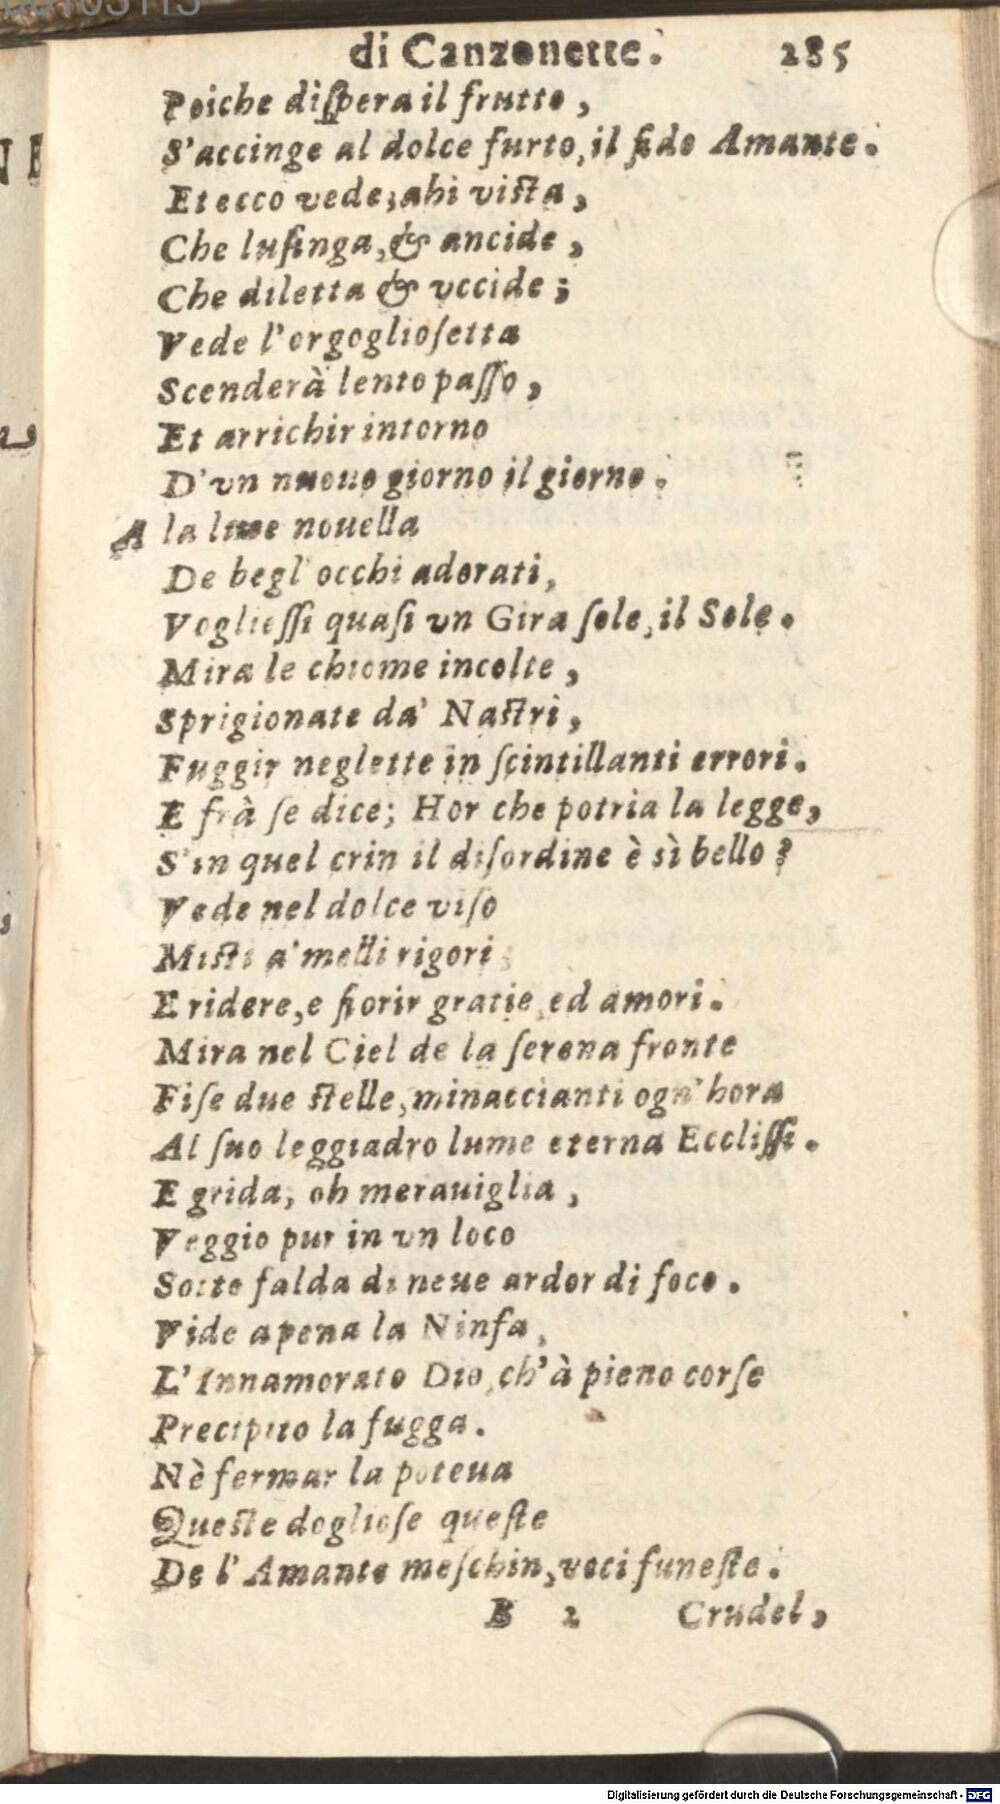 di Canzonette. 285
Poiche diſpera il frutto,
S'accinge al dolce furto, il fido Amante.
Et ecco vede; ahi viſta,
Che luſinga, & ancide,
Che diletta & vccide;
Vede l'orgoglioſetta
Scenderà lento paſſo,
Et arrichir intorno
D'vn nuouo giorno il giorno.
A la luce nouella
De begl'occhi adorati,
Voglieſſi quaſi vn Gira ſole, il Sole.
Mira le chiome incolte,
Sprigionate da' Naſtri,
Fuggir neglette in ſcintillanti errori.
E frà ſe dice; Hor che potria la legge,
S'in quel crin il diſordine è sì bello?
Vede nel dolce viſo
Miſti a' melli rigori;
E ridere, e fiorir gratie, ed amori.
Mira nel Ciel de la ſerena fronte
Fiſe due ſtelle, minaccianti ogn'hora
Al ſuo leggiadro lume eterna Eccliſſi.
E grida, oh merauiglia,
Veggio pur in vn loco
Sotto falda di neue ardor di foco.
Vide apena la Ninfa,
L'Innamorato Dio, ch'à pieno corſe
Precipito la fugga.
Nè fermar la poteua
Queſte doglioſe queſte
De l'Amante meſchin, voci funeſte.
B 2 Crudel,
Digitalisierung gefördert durch die Deutsche Forschungsgemeinschaft - DFG